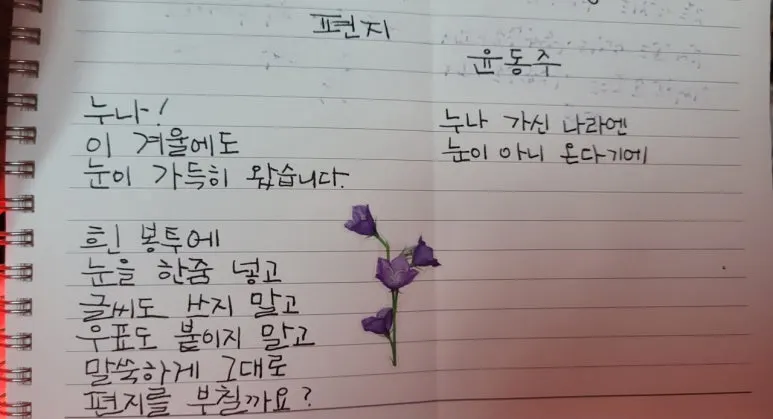 편지
윤동주
누나!
이 겨울에도
눈이 가득히 왔습니다.
흰 봉투에
눈을 한줌 넣고
글씨도 쓰지 말고
우표도 붙이지 말고
말쑥하게 그대로
편지를 부칠까요?
누나 가신 나라엔
눈이 아니 온다기에